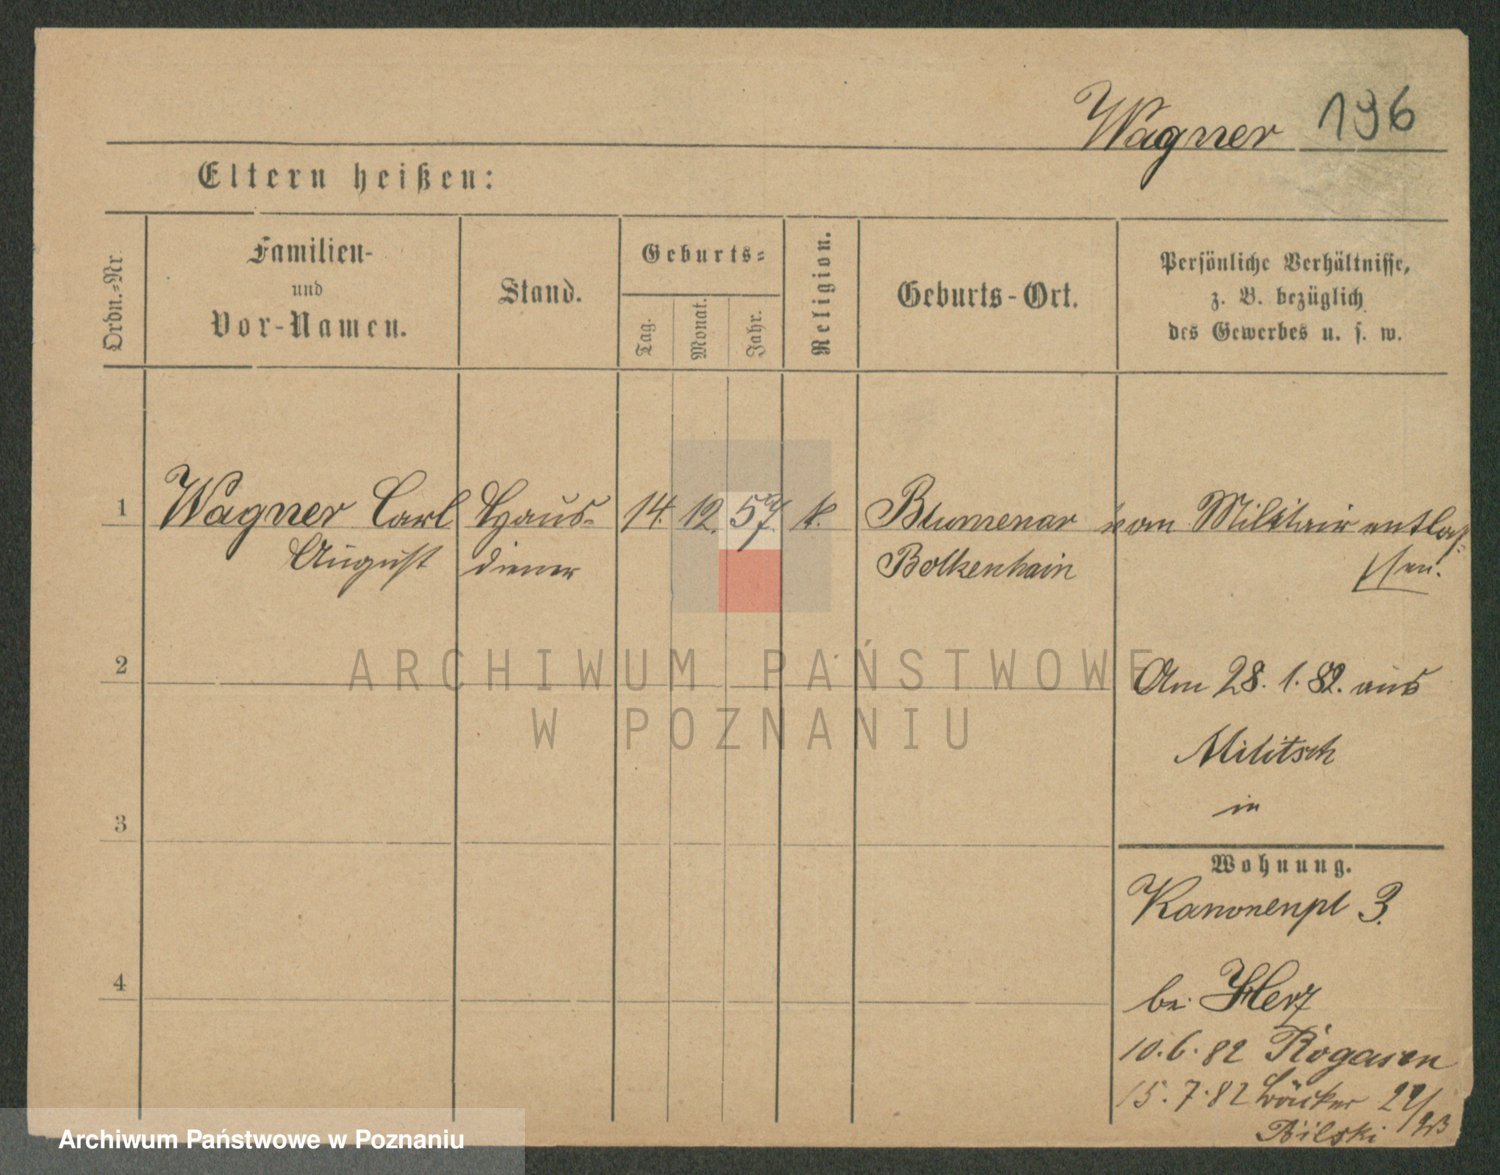 Wagner 196
Eltern heißen:
Ordn.-Nr.
Familien-
und
Vor-Namen.
Stand.
Geburts-
Tag.
Monat.
Jahr.
Religion.
Geburts-Ort.
Persönliche Verhältnisse,
z. B. bezüglich
des Gewerbes u. s. w.
1 Wagner Carl Haus- 14. 12. 57. k. Blumenau vom Militair entlas-
August diener Bolkenhain sen.
2 Am 28. 1. 82. aus
Militsch
in
3
Wohnung.
Kanonenpl 3.
4 bei Herz
10. 6. 82 Rogasen
15. 7. 82
Bilski
ARCHIWUM PAŃSTWOWE
W POZNANIU
Archiwum Państwowe w Poznaniu